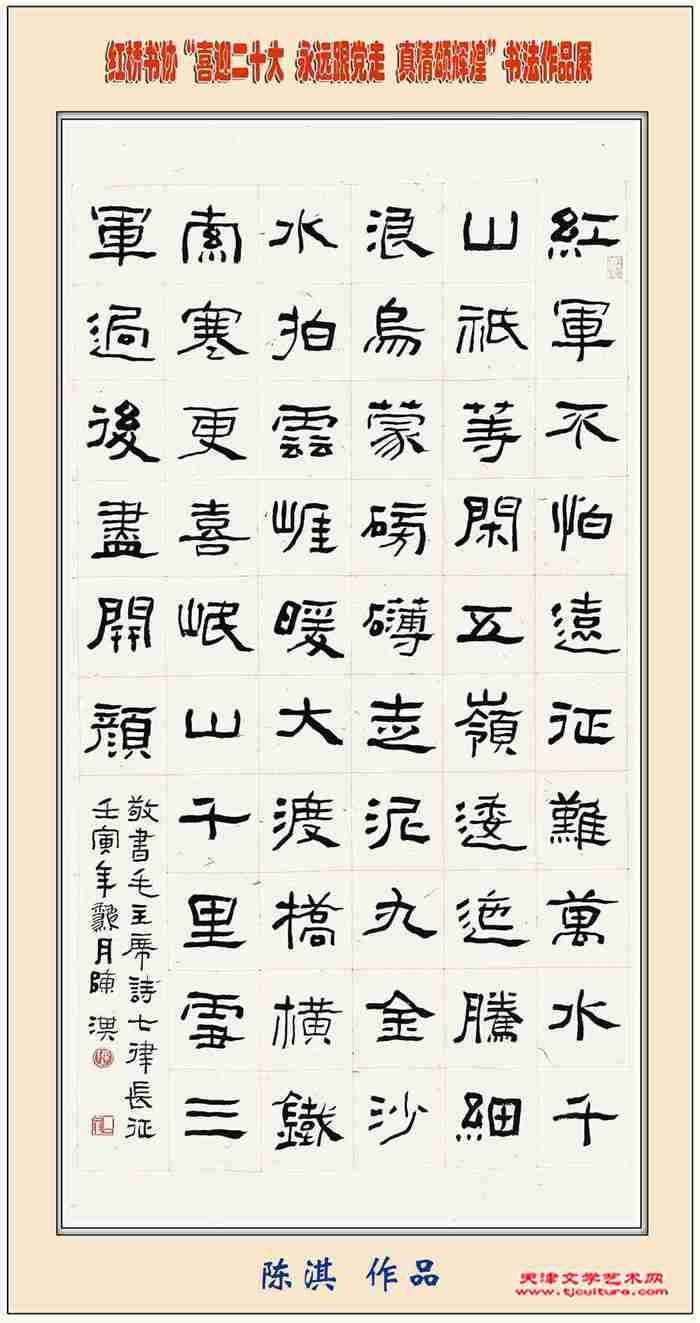 红桥书协“喜迎二十大 永远跟党走 真情颂辉煌”书法作品展
紅軍不怕遠征難萬水千
山祇等閑五嶺逶迤騰細
浪烏蒙磅礴走泥丸金沙
水拍雲崕暖大渡橋橫鐵
索寒更喜岷山千里雪三
軍過後盡開顏
敬書毛主席詩七律長征
壬寅年龍月陳淇
陈淇 作品
天津文学艺术网
www.tjculture.com